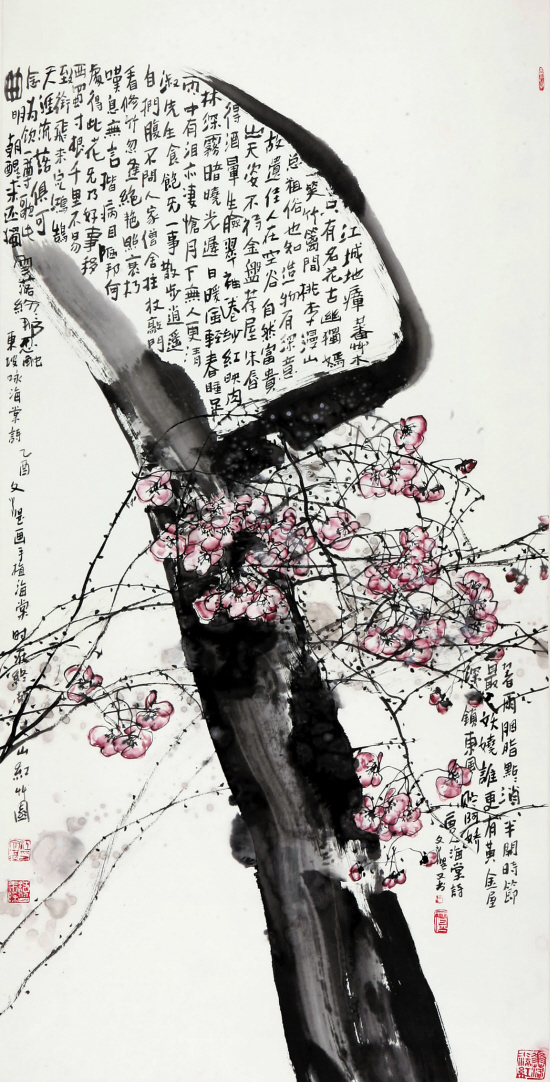 江城地瘴蕃草木
只有名花苦幽獨嫣
然一笑竹篱間桃李漫山
总粗俗也知造物有深意
故遣佳人在空谷自然富貴
出天姿不待金盤荐屋朱唇
得酒暈生臉翠袖卷紗紅映肉
林深霧暗曉光遲日暖風輕春睡足
雨中有泪亦凄愴月下無人更清
淑先生食飽无一事散步逍遥
自捫腹不問人家僧舍拄杖敲門
看修竹忽逢絶艳照衰朽
嘆息無言揩病目陋邦何
處得此花无乃好事移
西蜀寸根千里不易
至銜飛来定鴻鵠
天涯流落俱可
念为飲一尊歌此
曲明朝醒来还獨
雪落紛那忍触
東坡咏海棠詩 乙酉 文 画手植海棠时在 山紅竹園
著雨胭脂點消半開時節
最妖嬈誰更有黃金屋
深鎖東風貯阿嬌
人海棠詩
文 又书